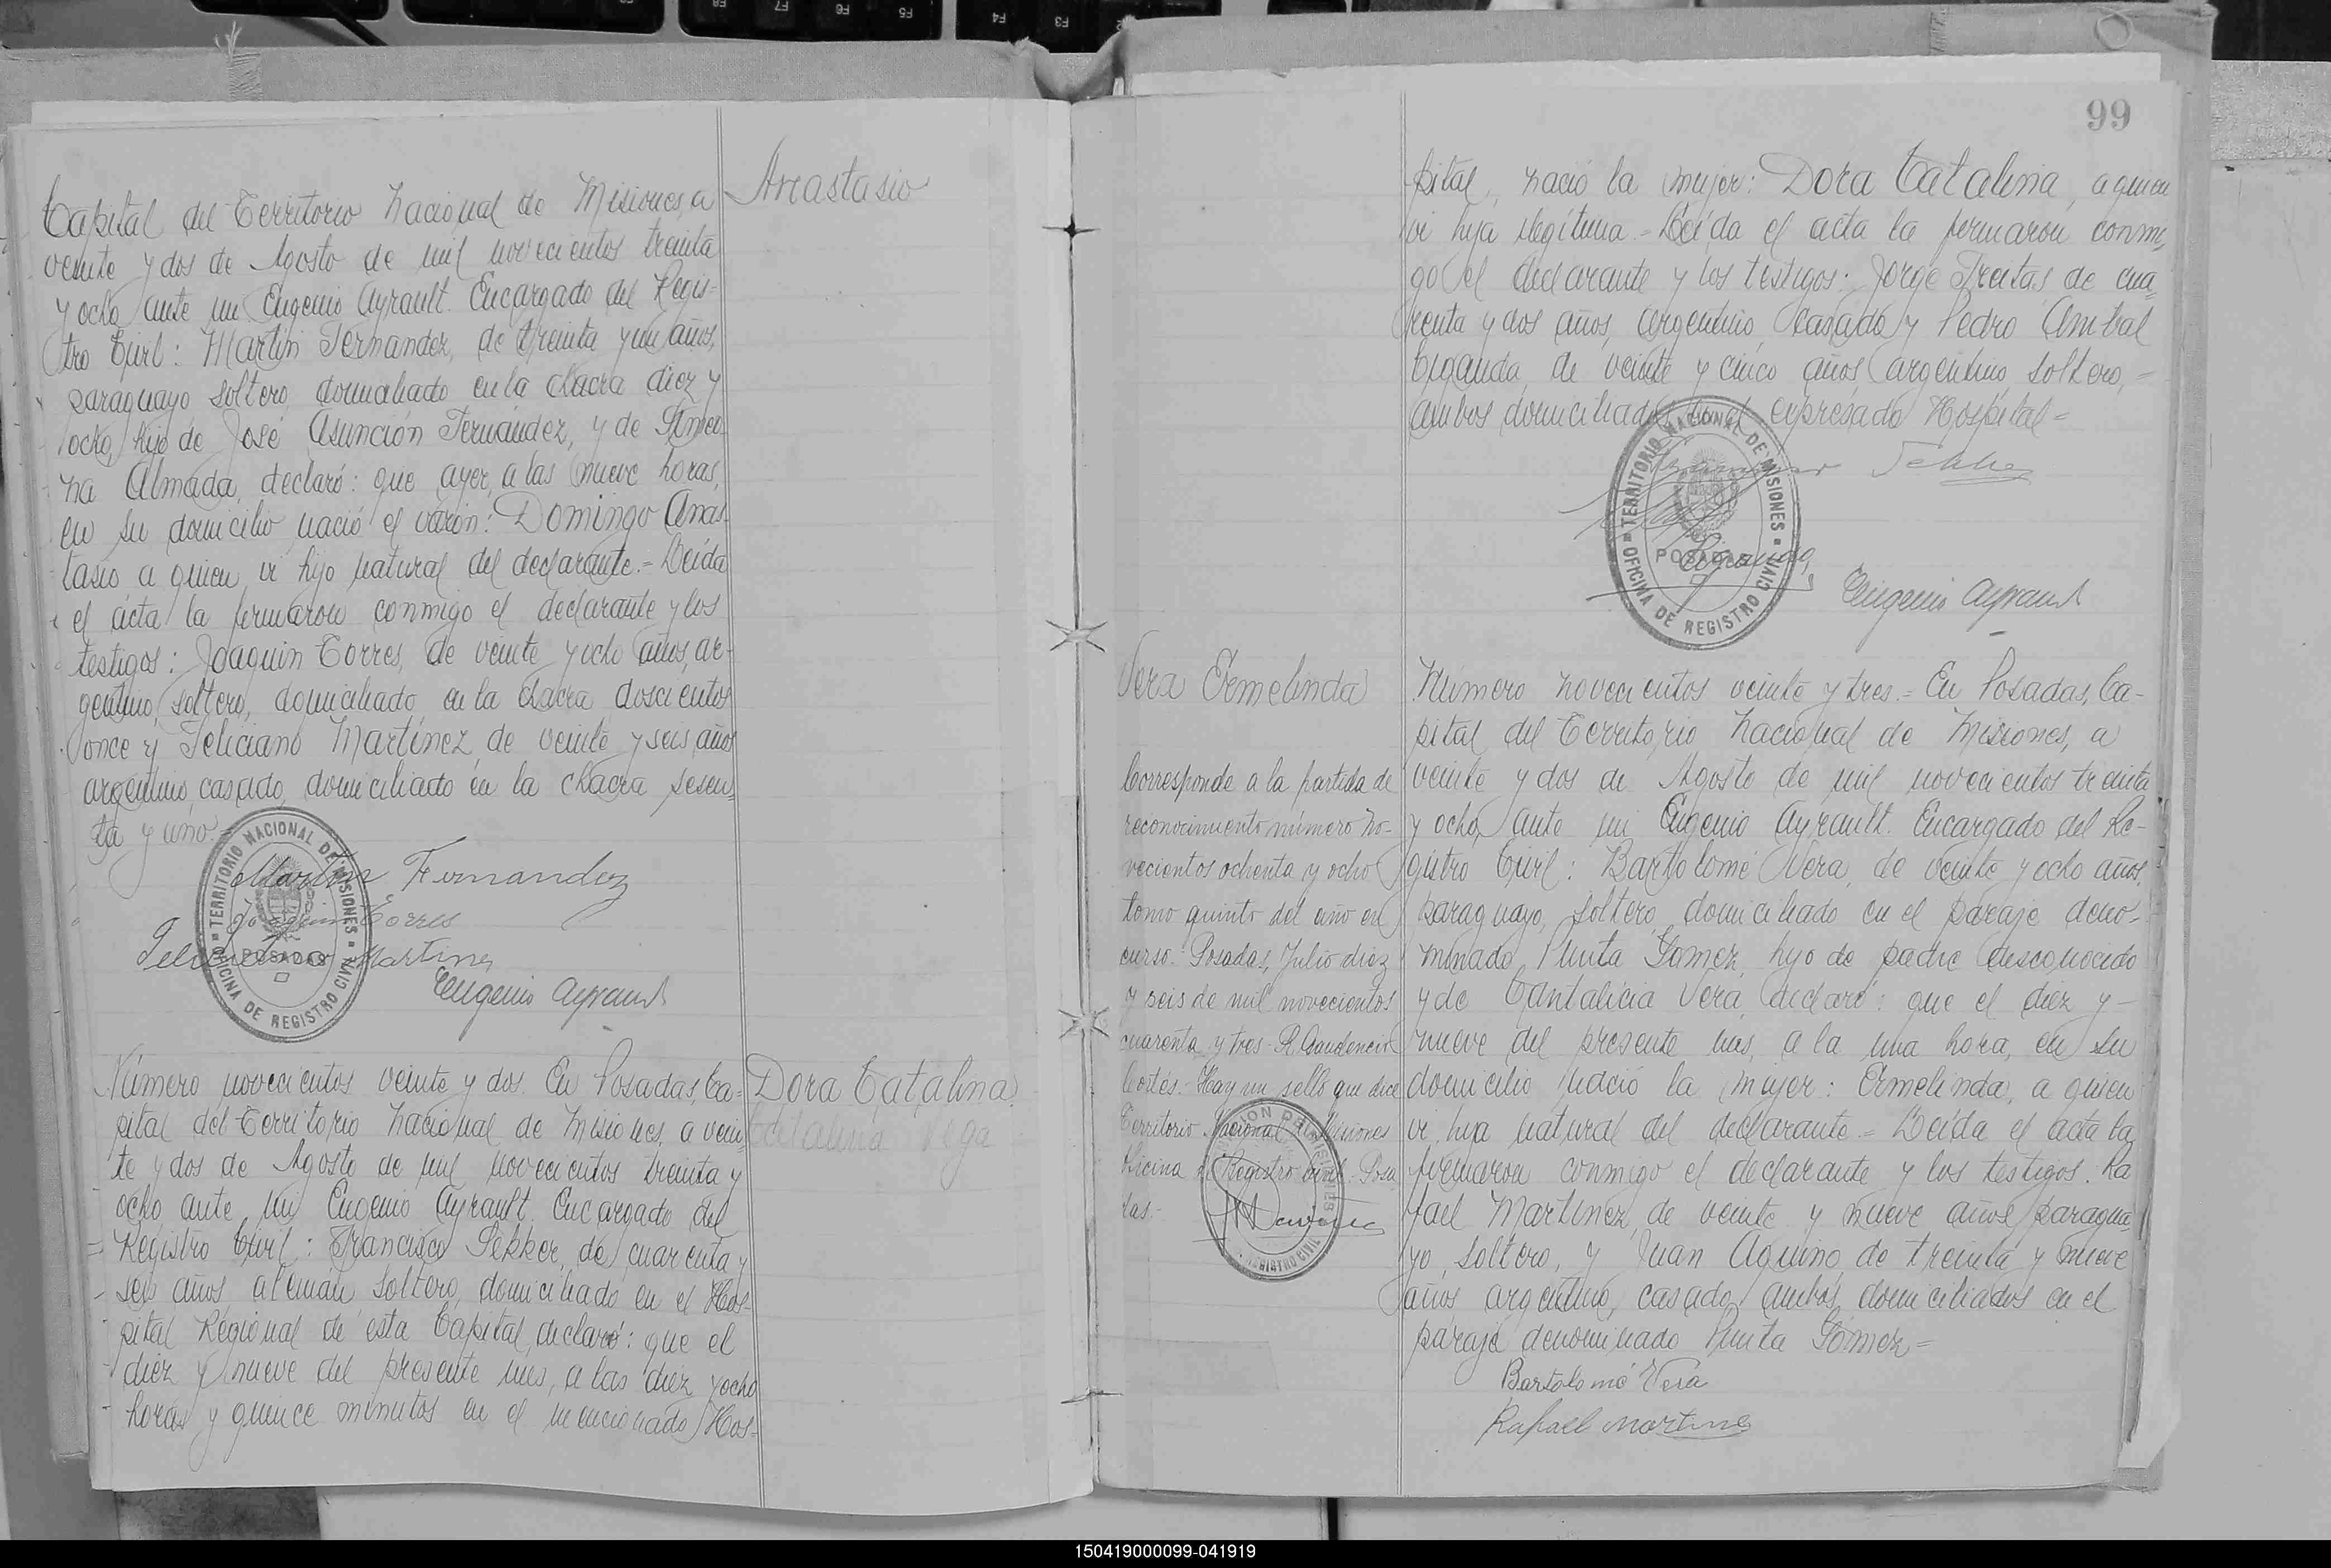 Anastasio
Capital del Territorio Nacional de Misiones, a
veinte y dos de Agosto de mil novecientos treinta
y ocho ante mi Eugenio Ayrault. Encargado del Regis-
tro Civil: Martin Fernandez, de treinta y un años,
paraguayo soltero, domiciliado en la chacra diez y
ocho, hijo de José Asunción Fernández, y de
na Almada, declaró: que ayer, a las nueve horas,
en su domicilio nació el varón: Domingo Anas-
tasio a quien vi hijo natural del declarante.= Leída
el acta la firmaron conmigo el declarante y los
testigos: Joaquin Torres, de veinte y ocho años, ar-
gentino, soltero, domiciliado en la chacra doscientos
once y Feliciano Martínez, de veinte y seis años
argentino, casado, domiciliado en la chacra sesen-
ta y uno.=
Martin Fernandez
Joaquin Torres
Feliciano Martinez
Eugenio Ayrault
TERRITORIO NACIONAL DE MISIONES
POSADAS
OFICINA DE REGISTRO CIVIL
Dora Catalina
Vega
Número novecientos veinte y dos. En Posadas, Ca-
pital del Territorio Nacional de Misiones, a vein-
te y dos de Agosto de mil novecientos treinta y
ocho ante mi Eugenio Ayrault. Encargado del
Registro Civil: Francisco Sekker, de cuarenta y
seis años, alemán soltero, domiciliado en el Hos-
pital Regional de esta Capital, declaró: que el
diez y nueve del presente mes, a las diez y ocho
horas y quince minutos en el mencionado Hos-
99
pital, nació la mujer: Dora Catalina, a quien
vi hija ilegítima.= Leída el acta la firmaron conmi-
go el declarante y los testigos: Jorge Freitas de cua-
renta y dos años, argentino, casado y Pedro Anibal
Eiganda, de veinte y cinco años, argentino, soltero,=
ambos domiciliados en el expresado Hospital=
TERRITORIO NACIONAL DE MISIONES
POSADAS
OFICINA DE REGISTRO CIVIL
Eugenio Ayrault
Vera Ermelinda
Corresponde a la partida de
reconocimiento número no-
vecientos ochenta y ocho
tomo quinto del año en
curso. Posadas, Julio diez
y seis de mil novecientos
cuarenta y tres- R. Gaudencio
Cortés.- Hay un sello que dice
Territorio Nacional de Misiones
Oficina de Registro civil- Posa-
das.-
REGISTRO CIVIL
Número novecientos veinte y tres.= En Posadas, Ca-
pital del Territorio Nacional de Misiones, a
veinte y dos de Agosto de mil novecientos treinta
y ocho, ante mi Eugenio Ayrault. Encargado del Re-
gistro Civil: Bartolomé Vera, de veinte y ocho años,
paraguayo, soltero, domiciliado en el paraje deno-
minado Punta Gómez, hijo de padre desconocido
y de Cantalicia Vera, declaró: que el diez y-
nueve del presente mes, a la una hora, en su
domicilio nació la mujer: Ermelinda, a quien
vi hija natural del declarante.= Leída el acta la
firmaron conmigo el declarante y los testigos: Ra-
fael Martinez, de veinte y nueve años, paragua-
yo, soltero, y Juan Aquino de treinta y nueve
años argentino, casado, ambos domiciliados en el
paraje denominado Punta Gómez=
Bartolomé Vera
Rafael Martinez
150419000099-041919